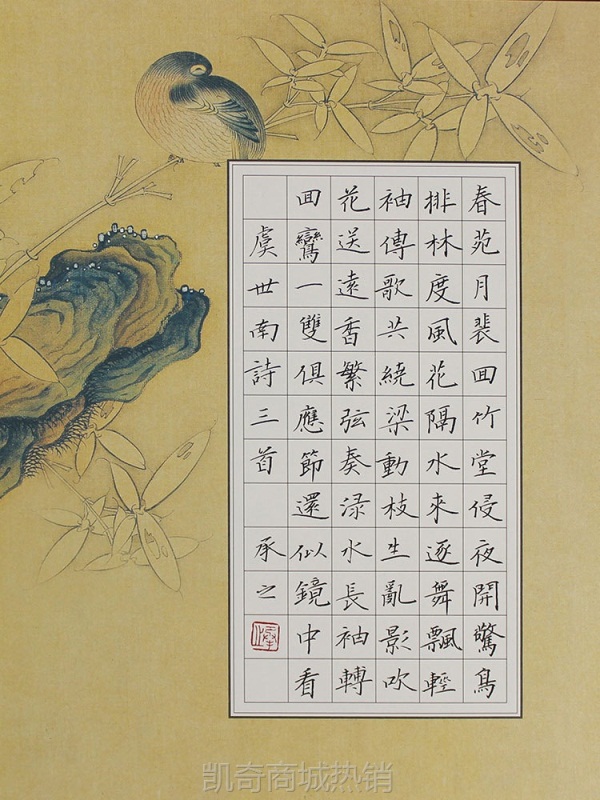 春苑月裴囬竹堂侵夜開驚鳥
排林度風花隔水來逐舞飄輕
袖傳歌共繞梁動枝生亂影吹
花送遠香繁弦奏淥水長袖轉
囬鸞一雙俱應節還似鏡中看
虞世南詩三首 承之
凯奇商城热销